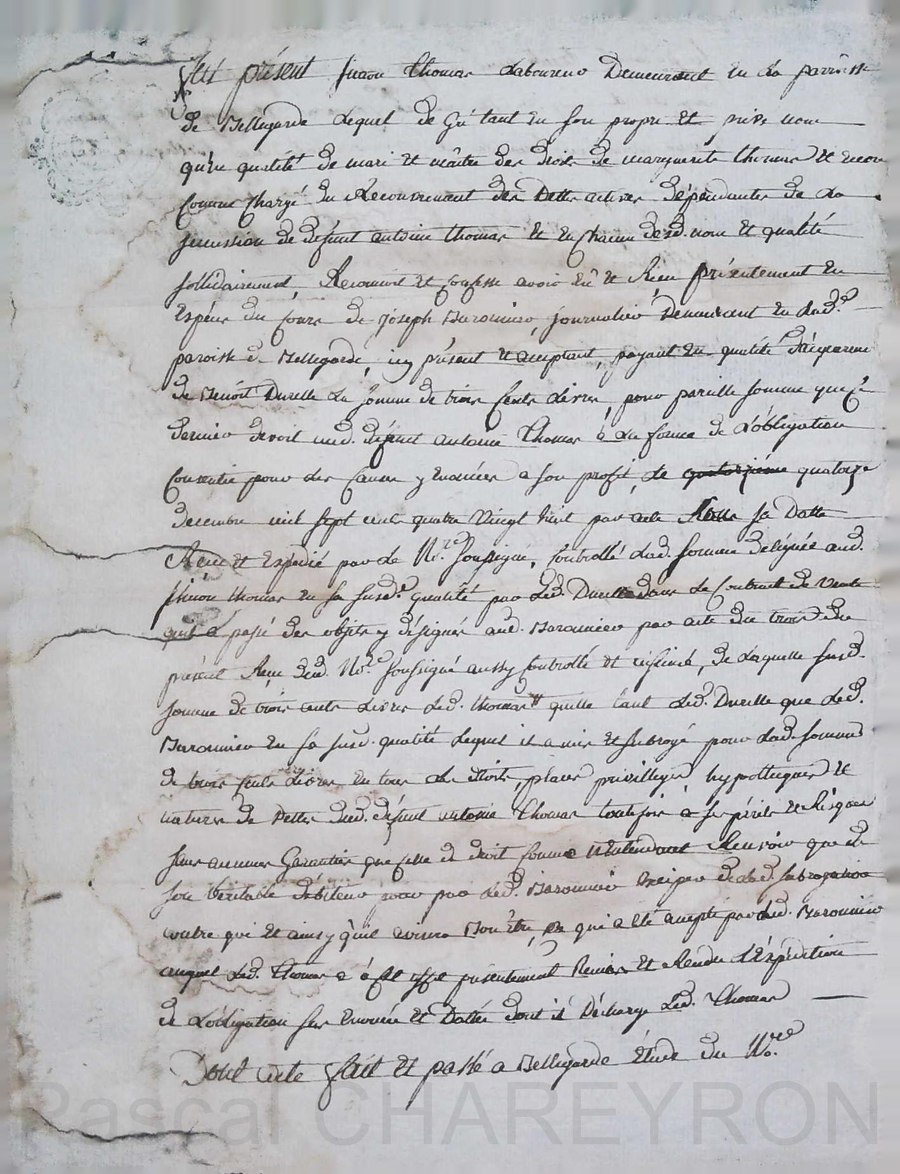 fut présent Simon Thomas Laboureur Demeurant en La parroisse
de Bellegarde Lequel de Gré tant en son propre et privé nom
qu'en qualité de mari et maître des Droits de marguerite thomas et encore
Comme Chargé du Recouvrement des Dettes actives Dépendantes de La
succession de défunt antoine thomas et en Chacun desd. nom et qualité
sollidairement, Reconnoit et Confesse avoir eû et Reçu présentement en
Espèces du Cours de Joseph Baronnier, journalier Demeurant en Lad.e
paroisse de Bellegarde, icy présent et acceptant, payant en qualité d'acquereur
de Benoît Durelle La somme de trois Cents Livres, pour pareille somme que Ce
dernier devoit aud. défunt antoine Thomas à La forme de L'obligation
Consentie pour des Causes y énoncées a son profit, le quatorzième quatorze
decembre mil sept cent quatre Vingt huit par acte sous sa Datte
Reçu et Expédié par Le No.re soussigné, Controllé Lad. somme deléguée aud.
simon thomas en sa susd.e qualité par Led. Durelle dans Le Contract de Vente
qu'il a passé des objets y désignés aud. Baronnier par acte du trois du
présent Reçu dud. No.re soussigné aussy Controllé et insinué, de Laquelle susd.
somme de trois cents Livres Led. thomas quitte tant Led. Durelle que Led.
Baronnier en sa susd. qualité Lequel il a mis et subrogé pour Lad. somme
de trois Cents Livres en tous Les droits, places privilleges, hypotheques et
natures de Dettes dud. défunt antoine Thomas toutefois a ses périls et Risques
sans aucunes Garanties que celle de droit comme n'entendant Recevoir que de
son Véritable débiteur pour par Led. Baronnier Exciper de Lad. subrogation
contre qui et ainsy qu'il avisera Bon être, Ce qui a été accepté par Led. Baronnier
auquel Led. Thomas a présentement Remis et Rendu L'Expédition
de L'obligation sus énoncée et Dattée dont il décharge Led. Thomas
Dont acte fait et passé a Bellegarde étude du No.re
Pascal CHAREYRON